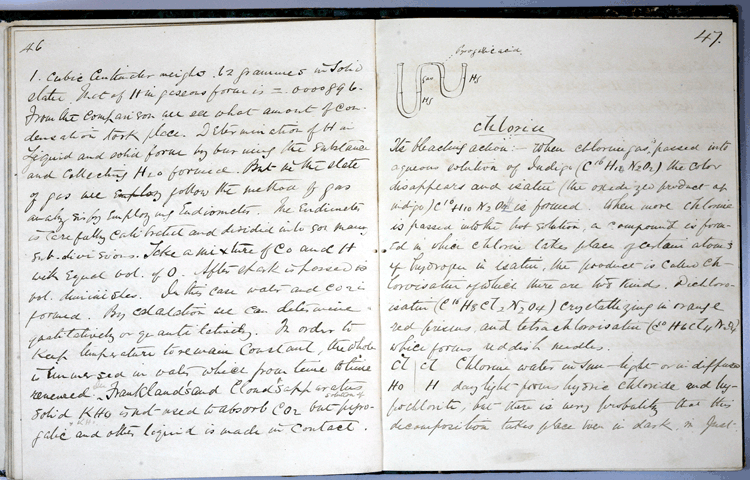 46
1. Cubic Centimeter weighs .62 grammes in Solid
state. That of H in gaseous form is = .0000896.
From the comparison we see what amount of con-
densation took place. Determination of H in
liquid and solid form by burning the substance
and collecting H2O formed. But in the state
of gas we Employ follow the method of gas
analysis by Employing Eudiometer. The Eudiometer
is carefully calibrated and divided into so many
sub-divisions. Take a mixture of Co and H
with Equal vol. of O. After spark is passed is
vol. diminishes. In this case water and co2 is
formed. By calculation we can determine
qualitatively or quantitatively. In order to
Keep temperature to remain Constant, the whole
is immersed in water which from time to time
renewed. Frankland's and Cloud's apparatus
solution of
solid KHO is not used to absorb CO2 but pyro-
gallic and other liquid is made in contact.
KHO
47.
Pyrogallic acid
gas
Hg
Hg
Chlorine
Its bleaching action:- When chlorine gas passed into
aqueous solution of Indigo (C16 H10 N2O2) the color
disappears and isatin (the oxidized product of
indigo) C16 H10 N2O4 is formed. When more chlorine
is passed into the hot solution, a compound is form-
ed in which chlorine takes place of certain atoms
of hydrogen in isatin, the product is called Ch-
lorisatin of which there are two kinds. Dichlor-
isatin (C16 H8 Cl2 N2O4) crystallizing in orange
red prisms, and tetra chlorisatin (C16 H6 Cl4 N2O4)
which forms reddish needles.
Cl | Cl Chlorine water in sun-light or in diffused
HO | H day light forms hydric chloride and hy-
pochlorite, but there is very probability that this
decomposition takes place even in dark, in just